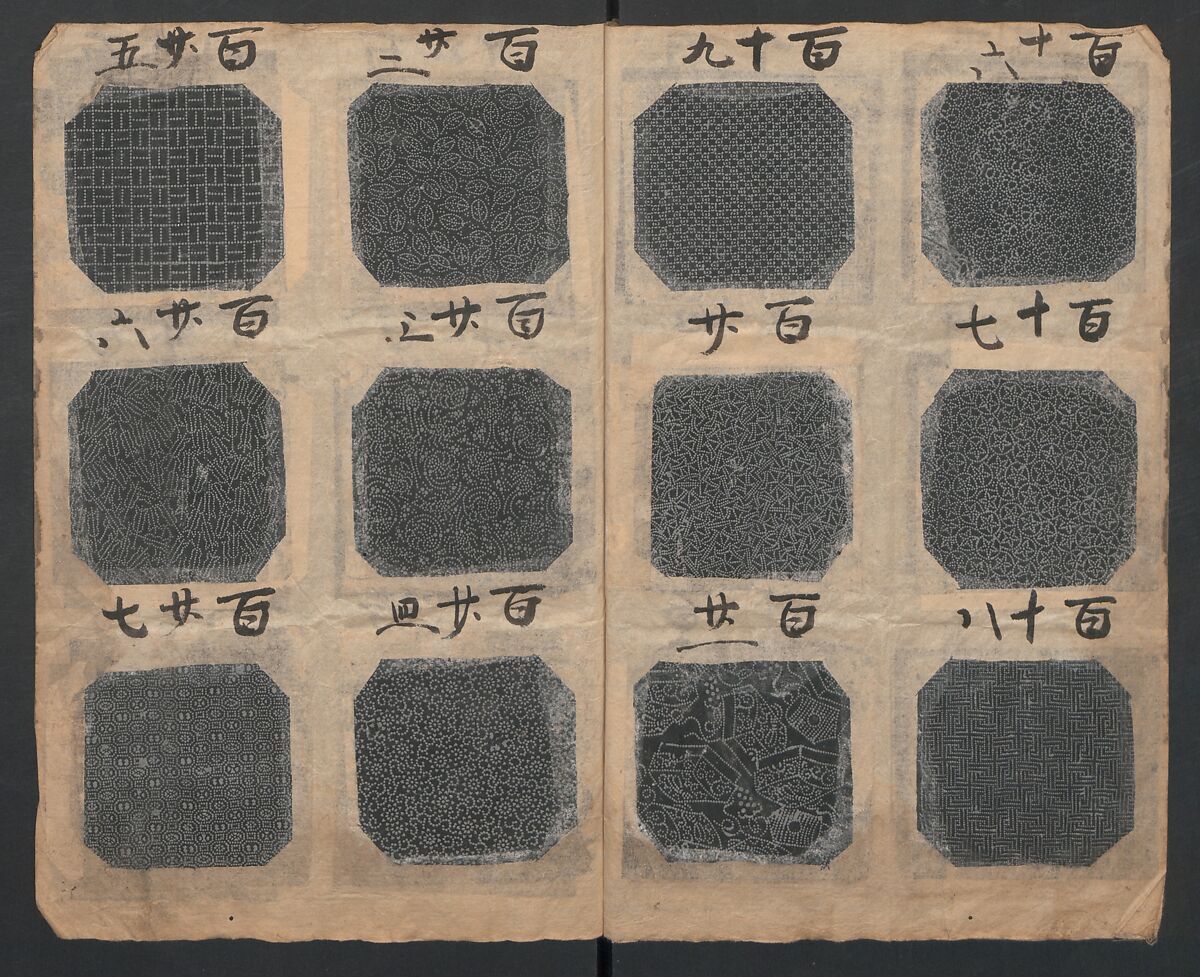 百十六
百十七
百十八
百十九
百廿
百廿一
百廿二
百廿三
百廿四
百廿五
百廿六
百廿七